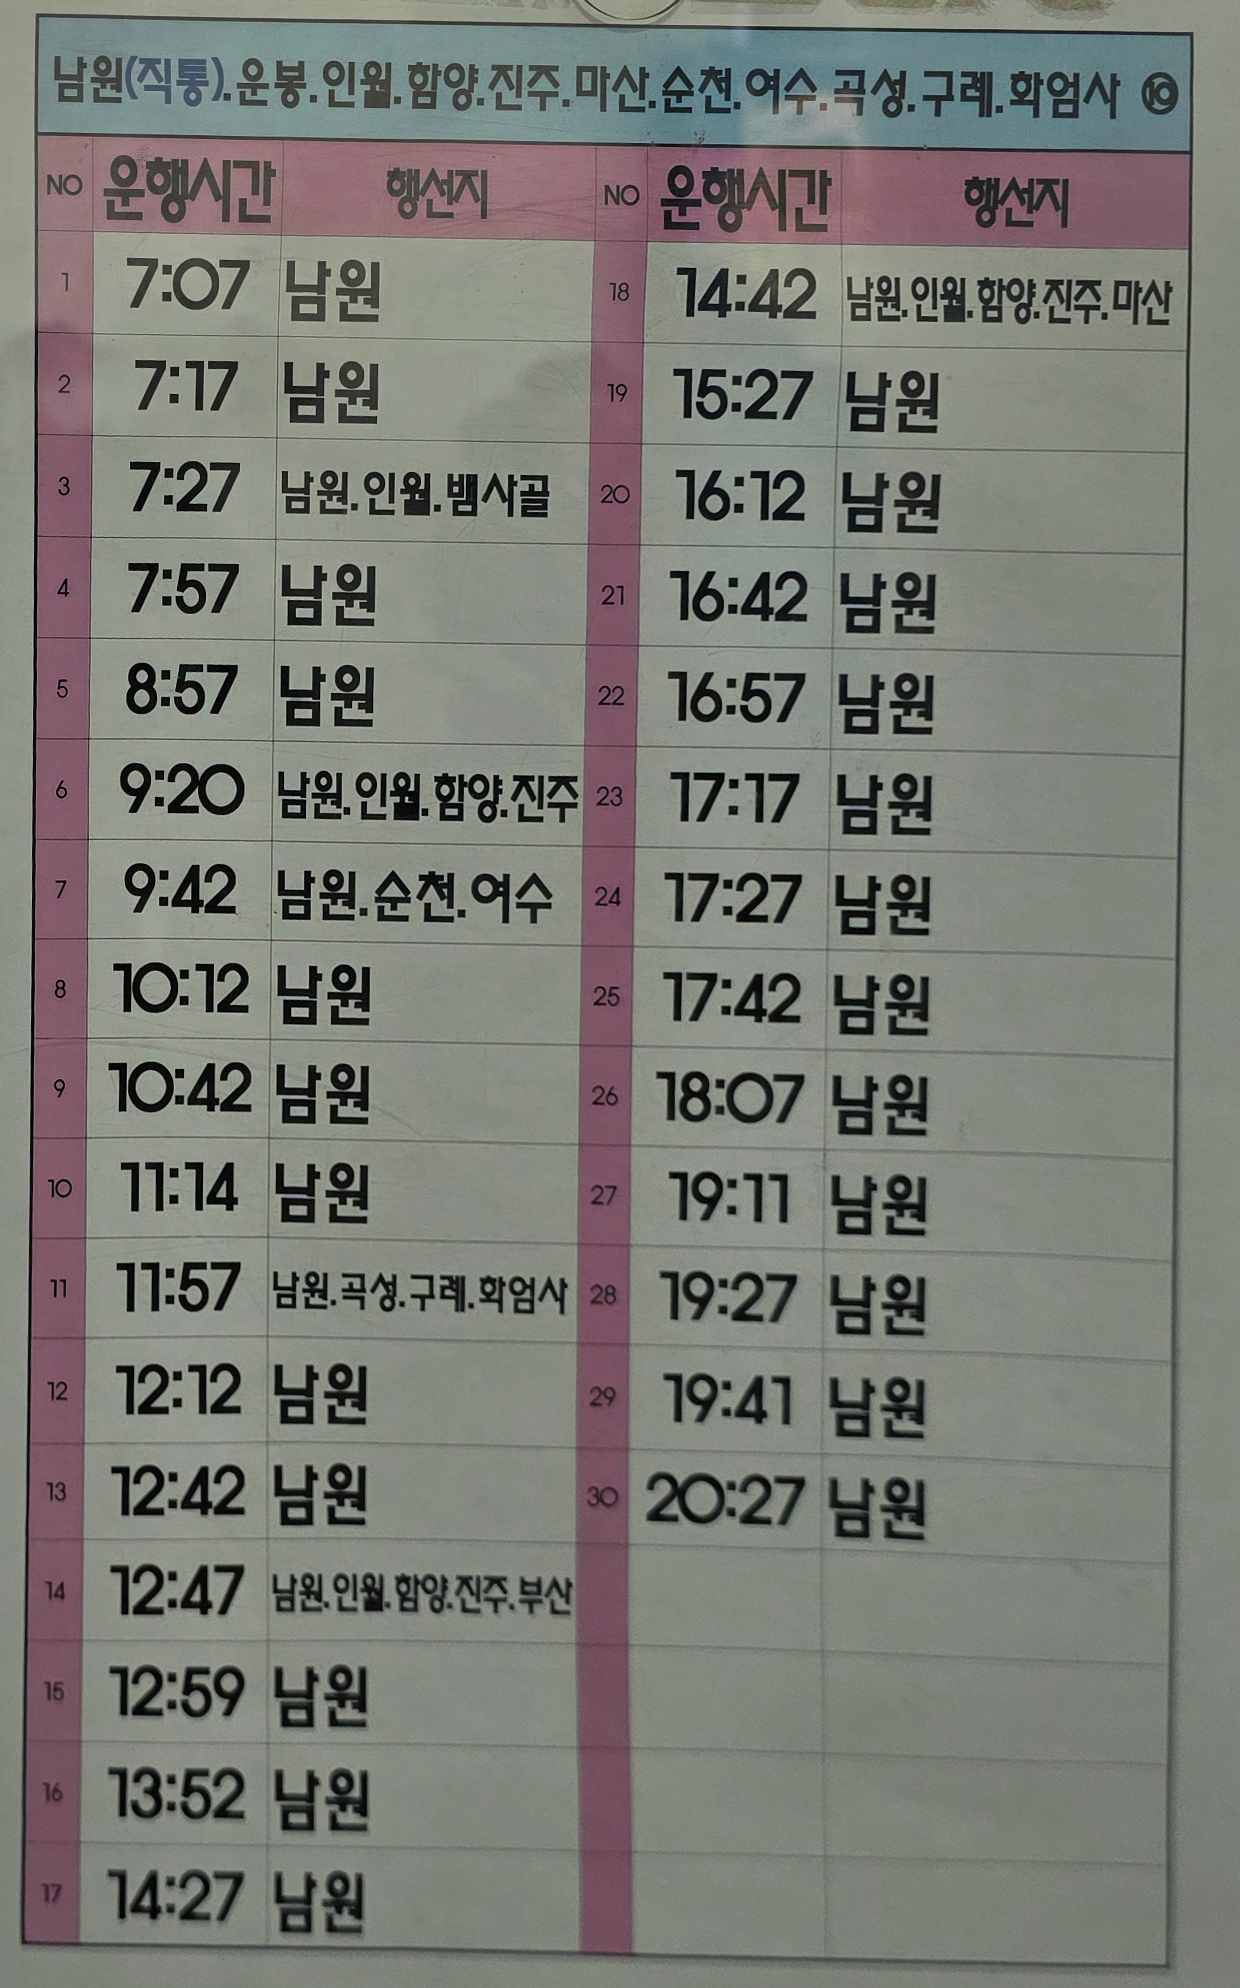 남원(직통).운봉.인월.함양.진주.마산.순천.여수.곡성.구례.화엄사 ⑩
NO 운행시간 행선지 NO 운행시간 행선지
1 7:07 남원 18 14:42 남원.인월.함양.진주.마산
2 7:17 남원 19 15:27 남원
3 7:27 남원.인월.뱀사골 20 16:12 남원
4 7:57 남원 21 16:42 남원
5 8:57 남원 22 16:57 남원
6 9:20 남원.인월.함양.진주 23 17:17 남원
7 9:42 남원.순천.여수 24 17:27 남원
8 10:12 남원 25 17:42 남원
9 10:42 남원 26 18:07 남원
10 11:14 남원 27 19:11 남원
11 11:57 남원.곡성.구례.화엄사 28 19:27 남원
12 12:12 남원 29 19:41 남원
13 12:42 남원 30 20:27 남원
14 12:47 남원.인월.함양.진주.부산
15 12:59 남원
16 13:52 남원
17 14:27 남원